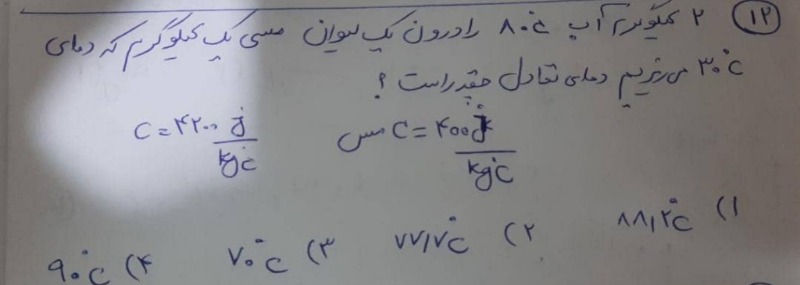 ۱۲) ۲ کیلوگرم آب ۸۰°c را درون یک لیوان مسی یک کیلوگرم که دمای
۳۰°c می ریزیم دمای تعادل چقدر است ؟
C = ۴۲۰۰ j/kg°c مس C = ۴۰۰ j/kg°c
۱) ۸۸,۲°c ۲) ۷۷,۷°c ۳) ۷۰°c ۴) ۹۰°c